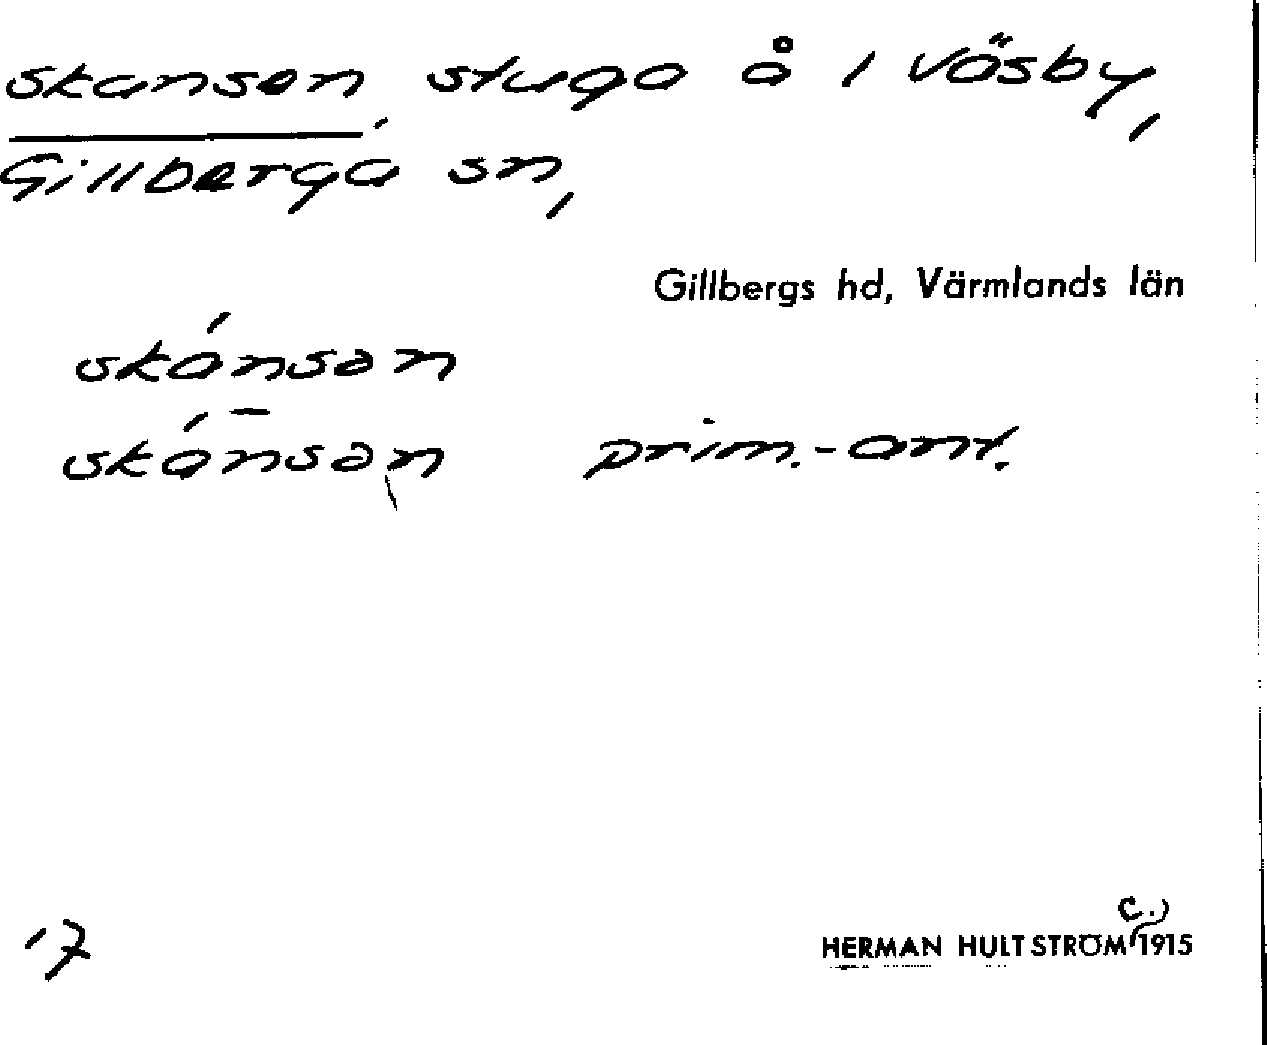 skansen, stuga å 1 Väsby,
Gillberga sn,
Gillbergs hd, Värmlands län
skánsən
skánsən prim.-ant.
17
C.)
HERMAN HULTSTRÖM 1915